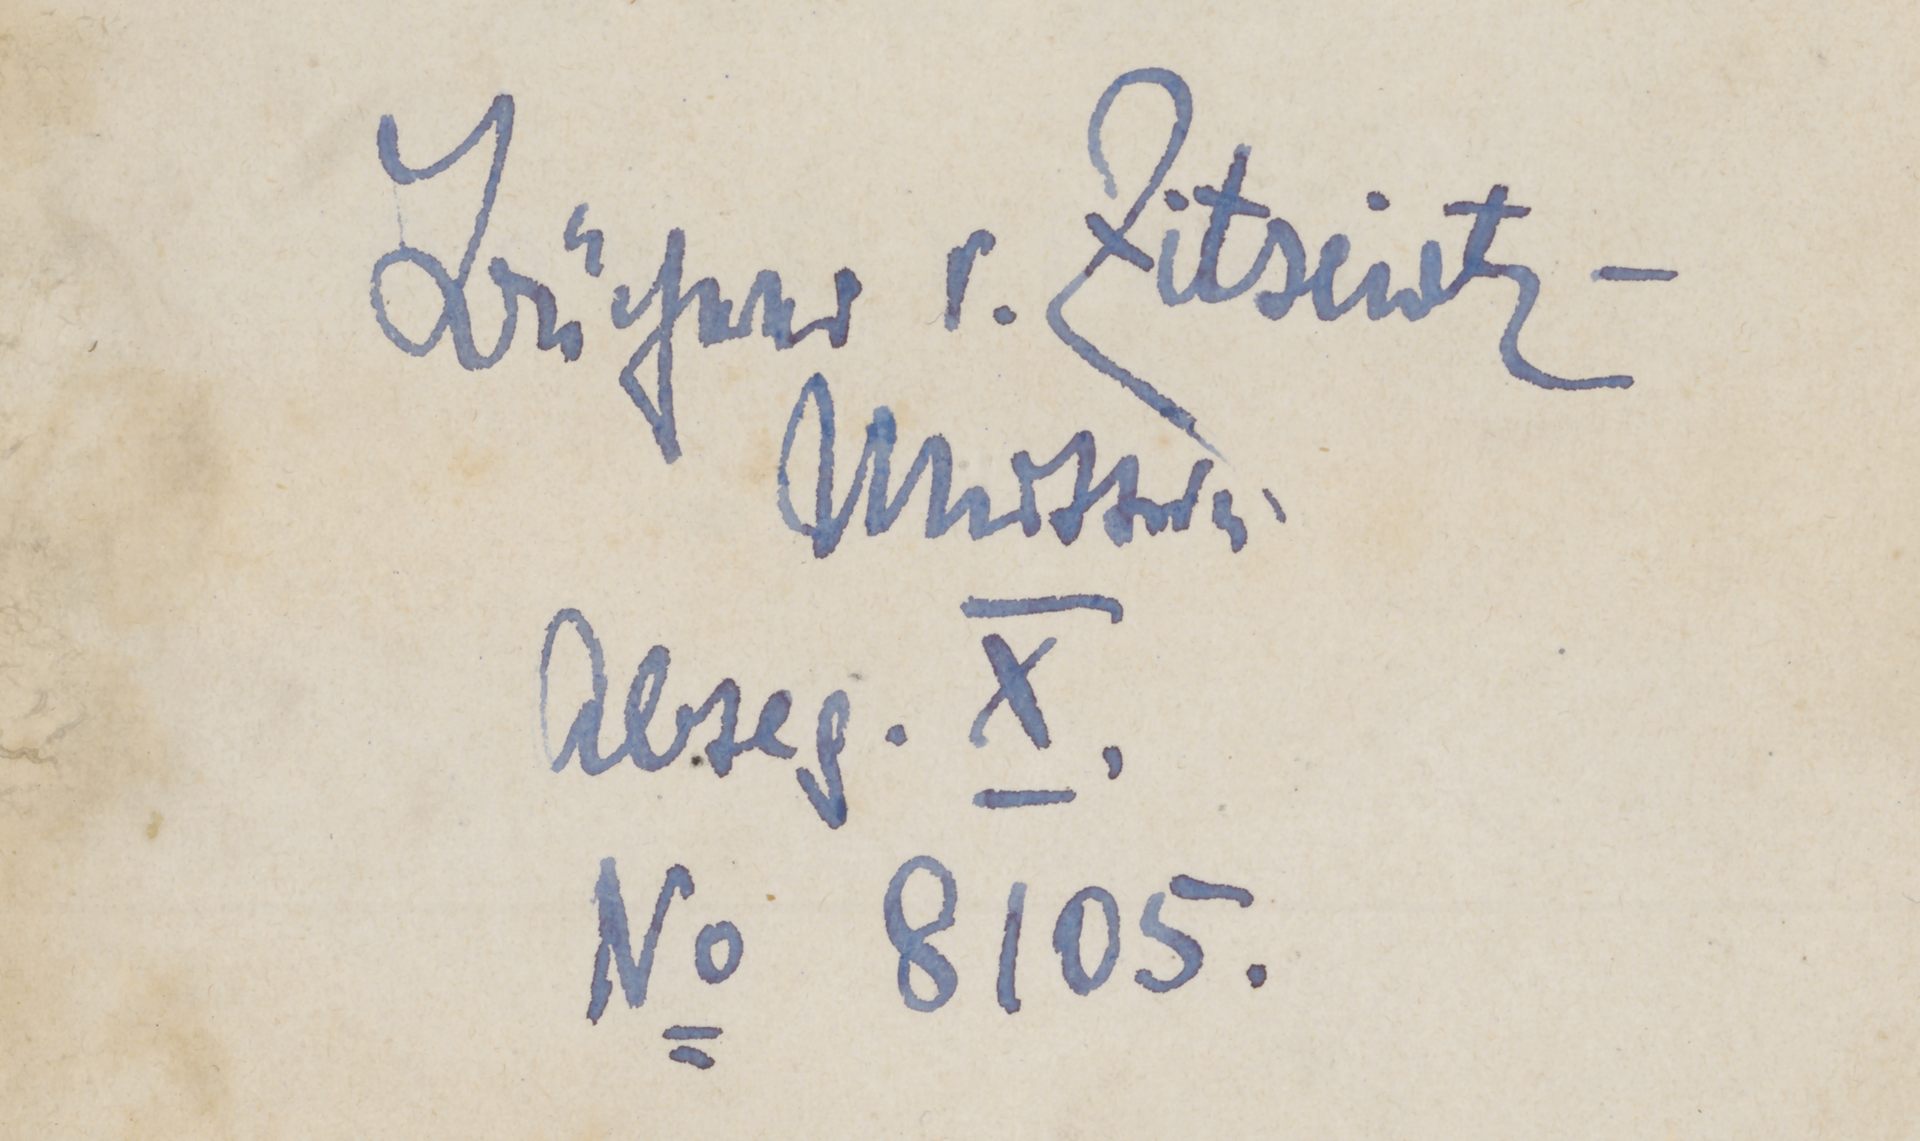 v. Zitzewitz -
Muttrin
Abseg. X.
No 8105.